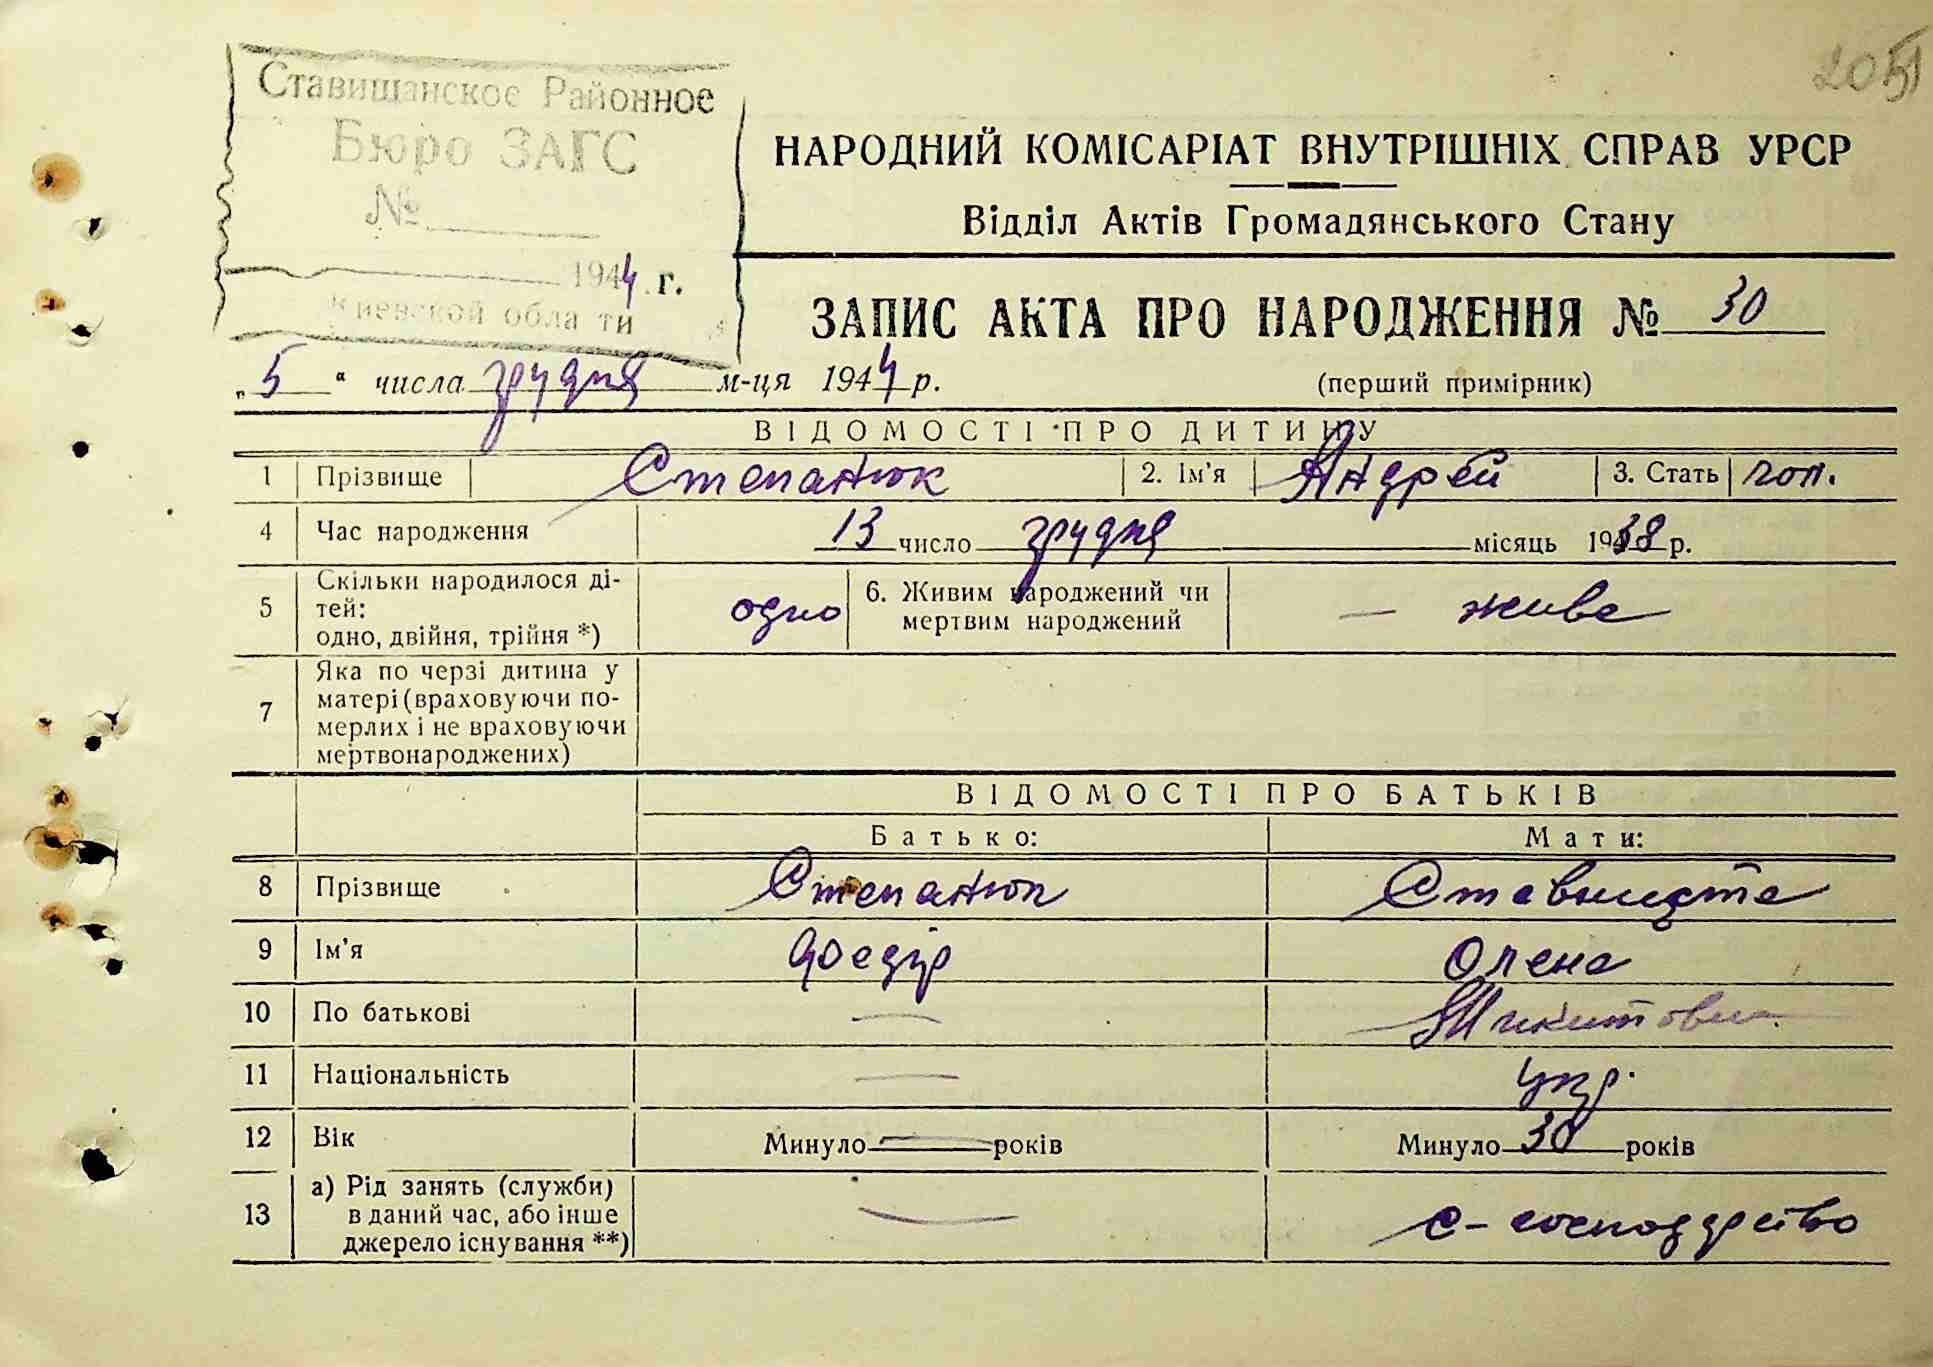 205
Ставищанское Районное
Бюро ЗАГС
№
1944 г.
Киевской области
НАРОДНИЙ КОМІСАРІАТ ВНУТРІШНІХ СПРАВ УРСР
Відділ Актів Громадянського Стану
ЗАПИС АКТА ПРО НАРОДЖЕННЯ № 30
„5“ числа грудня м-ця 1944 р. (перший примірник)
ВІДОМОСТІ ПРО ДИТИНУ
1 Прізвище Степанюк 2. Ім'я Андрей 3. Стать чол.
4 Час народження 13 число грудня місяць 1938 р.
5 Скільки народилося ді-
тей:
одно, двійня, трійня *) одно 6. Живим народжений чи
мертвим народжений — живе
7 Яка по черзі дитина у
матері (враховуючи по-
мерлих і не враховуючи
мертвонароджених)
ВІДОМОСТІ ПРО БАТЬКІВ
Батько: Мати:
8 Прізвище Степанюк
9 Ім'я Федір Олена
10 По батькові — Микитовна
11 Національність — укр.
12 Вік Минуло — років Минуло 30 років
13 а) Рід занять (служби)
в даний час, або інше
джерело існування **) — с-господарство